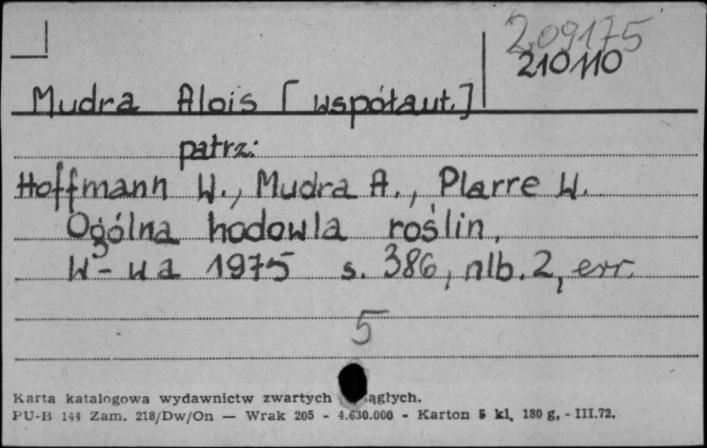 209175
210110
Mudra Alois [współaut.]
patrz:
Hoffmann W., Mudra A., Plarre W.
Ogólna hodowla roślin.
W-wa 1975 s. 386, nlb. 2, err.
5
Karta katalogowa wydawnictw zwartych ągłych.
PU-B 144 Zam. 218/Dw/On — Wrak 205 - 4.630.000 - Karton 5 kl. 180 g, - III.72.